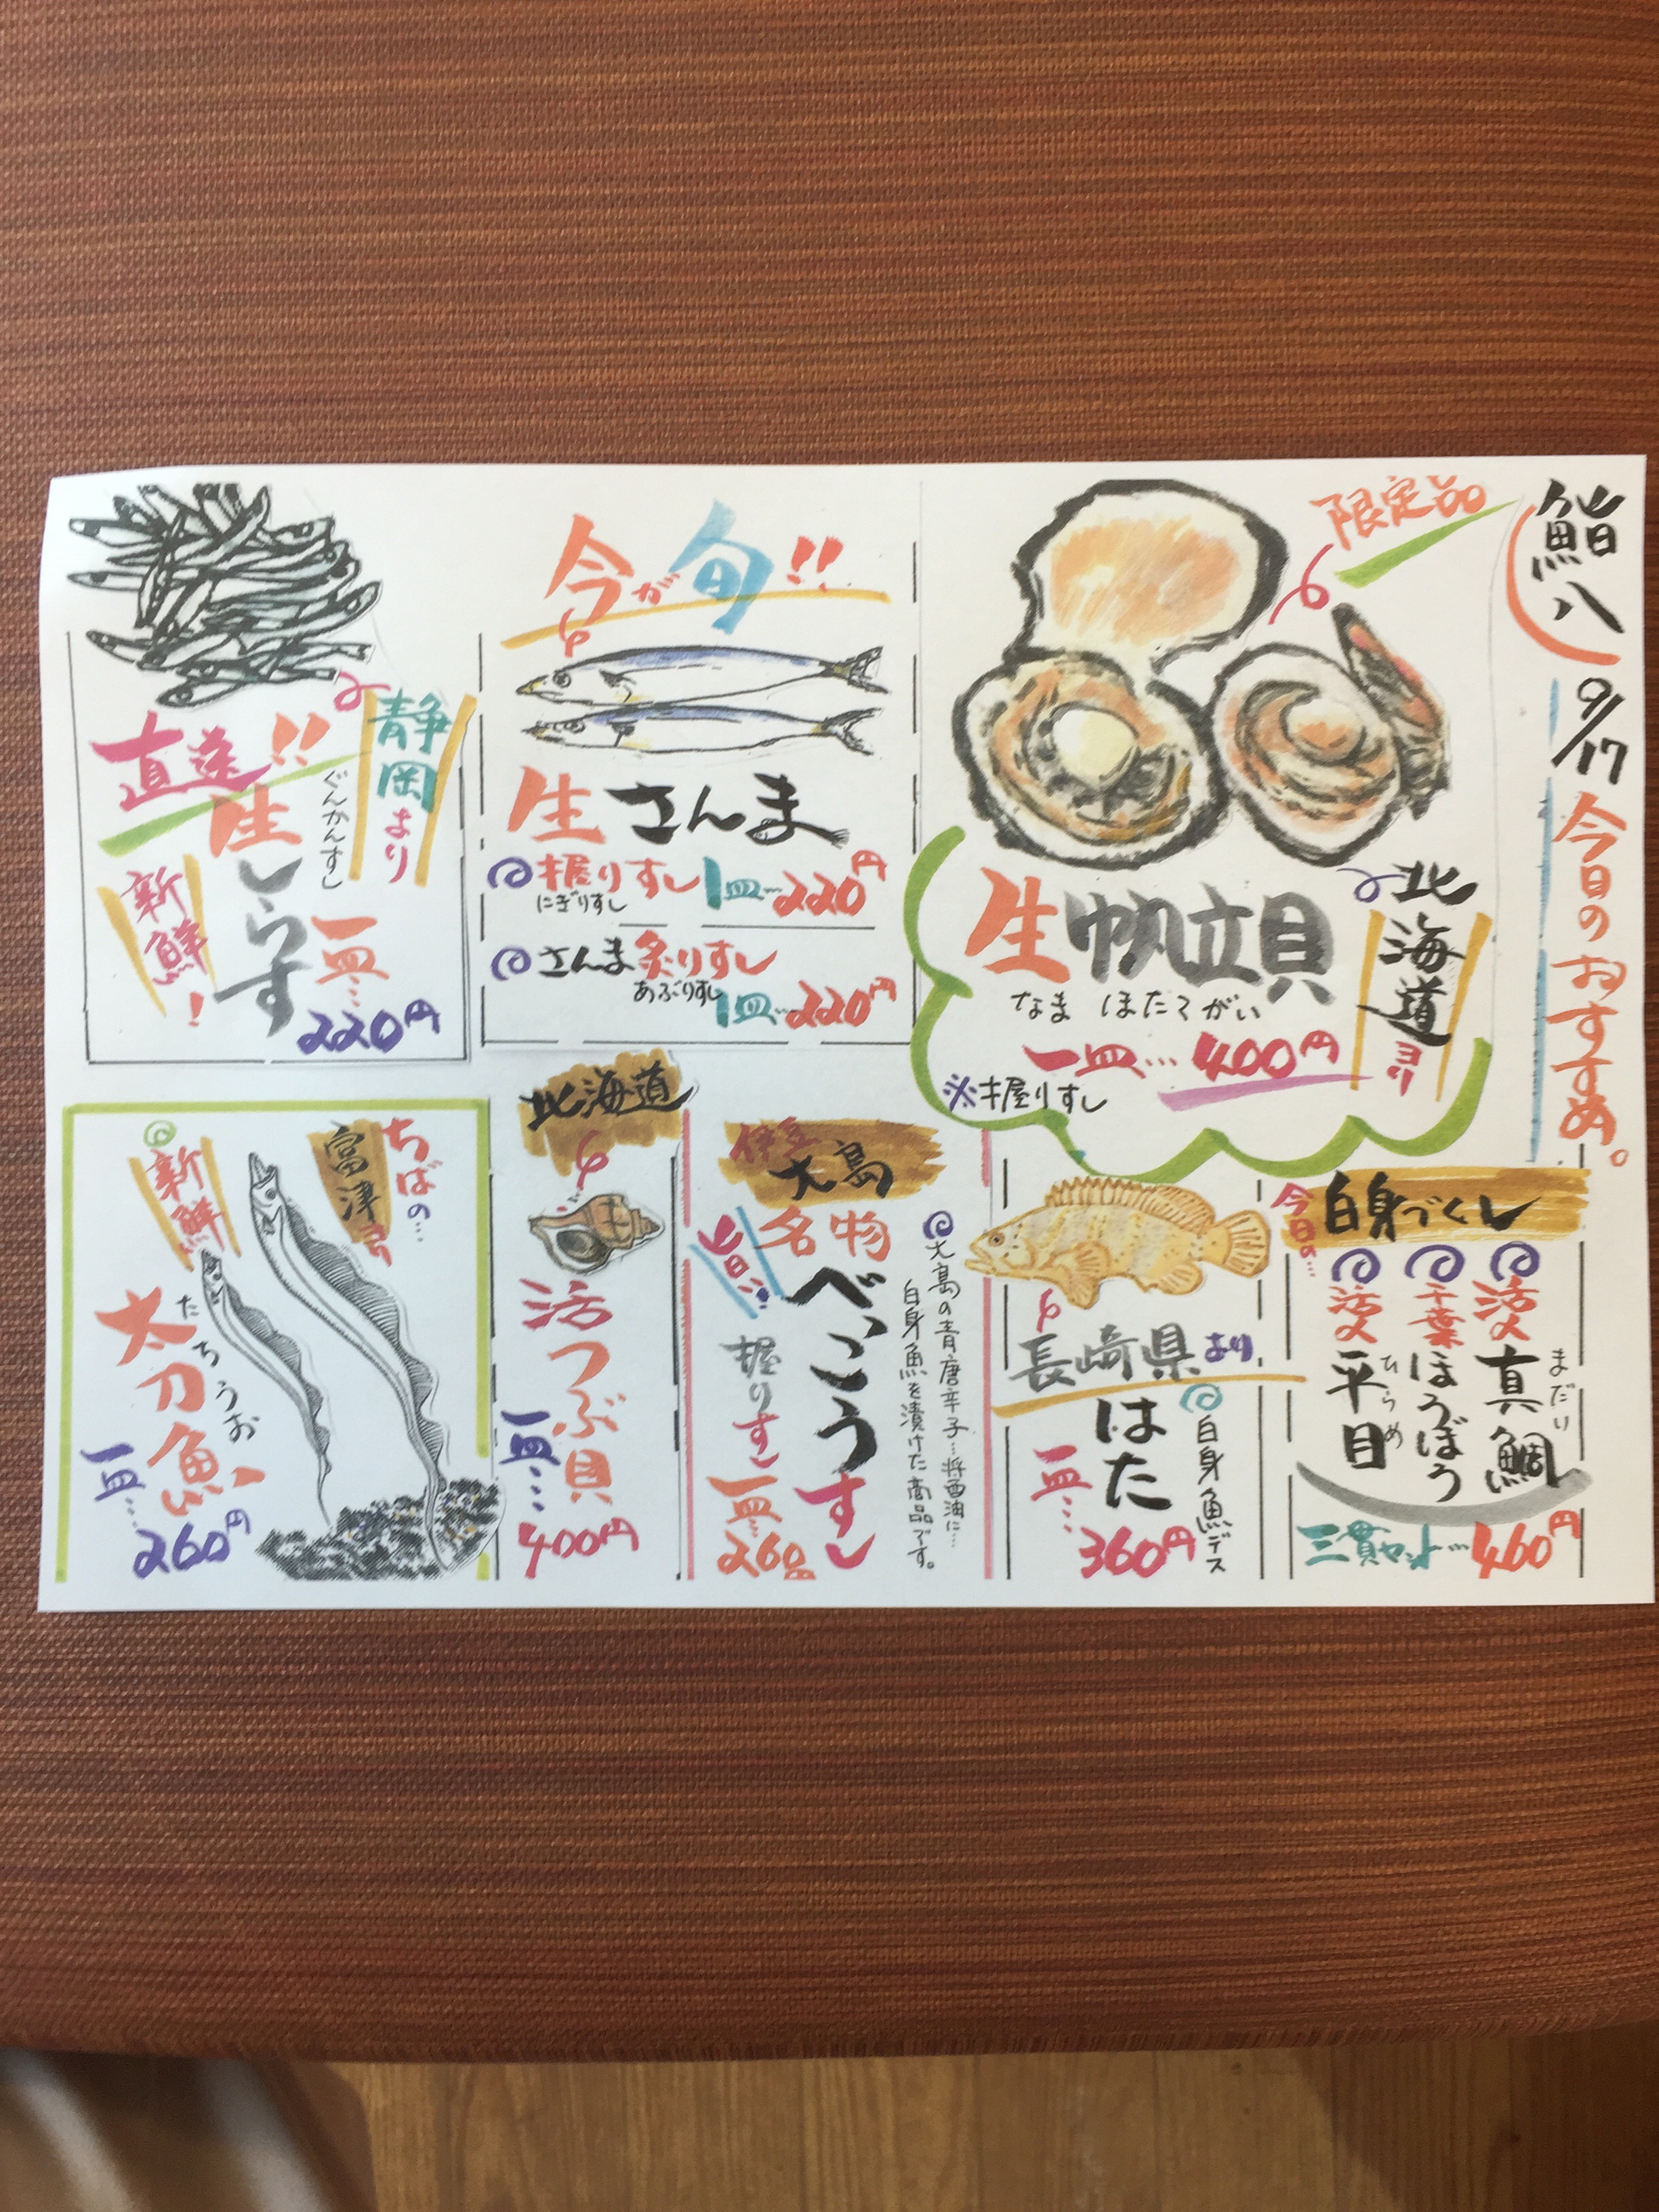 鮨八
9/17
今日のおすすめ。
限定品
北海道ヨリ
生帆立貝
なま ほたてがい
一皿…400円
※握りすし
今が旬!!
生さんま
握りすし 1皿…220円
にぎりすし
さんま炙りすし
あぶりすし
1皿…220円
静岡より
直送!!
ぐんかんすし
生しらす
新鮮!
一皿…
220円
今日の…
白身づくし
活〆
真鯛
まだい
千葉
ほうぼう
活〆
平目
ひらめ
三貫セット…460円
長崎県より
白身魚デス
はた
一皿…
360円
伊豆
大島
名物
べっこうすし
旨い!!
握りすし
大島の青唐辛子…将酉油に…
白身魚を漬けた商品です。
一皿…
260円
北海道
活つぶ貝
一皿…
400円
ちばの…
富津ヨリ
新鮮
太刀魚
たちうお
一皿…
260円